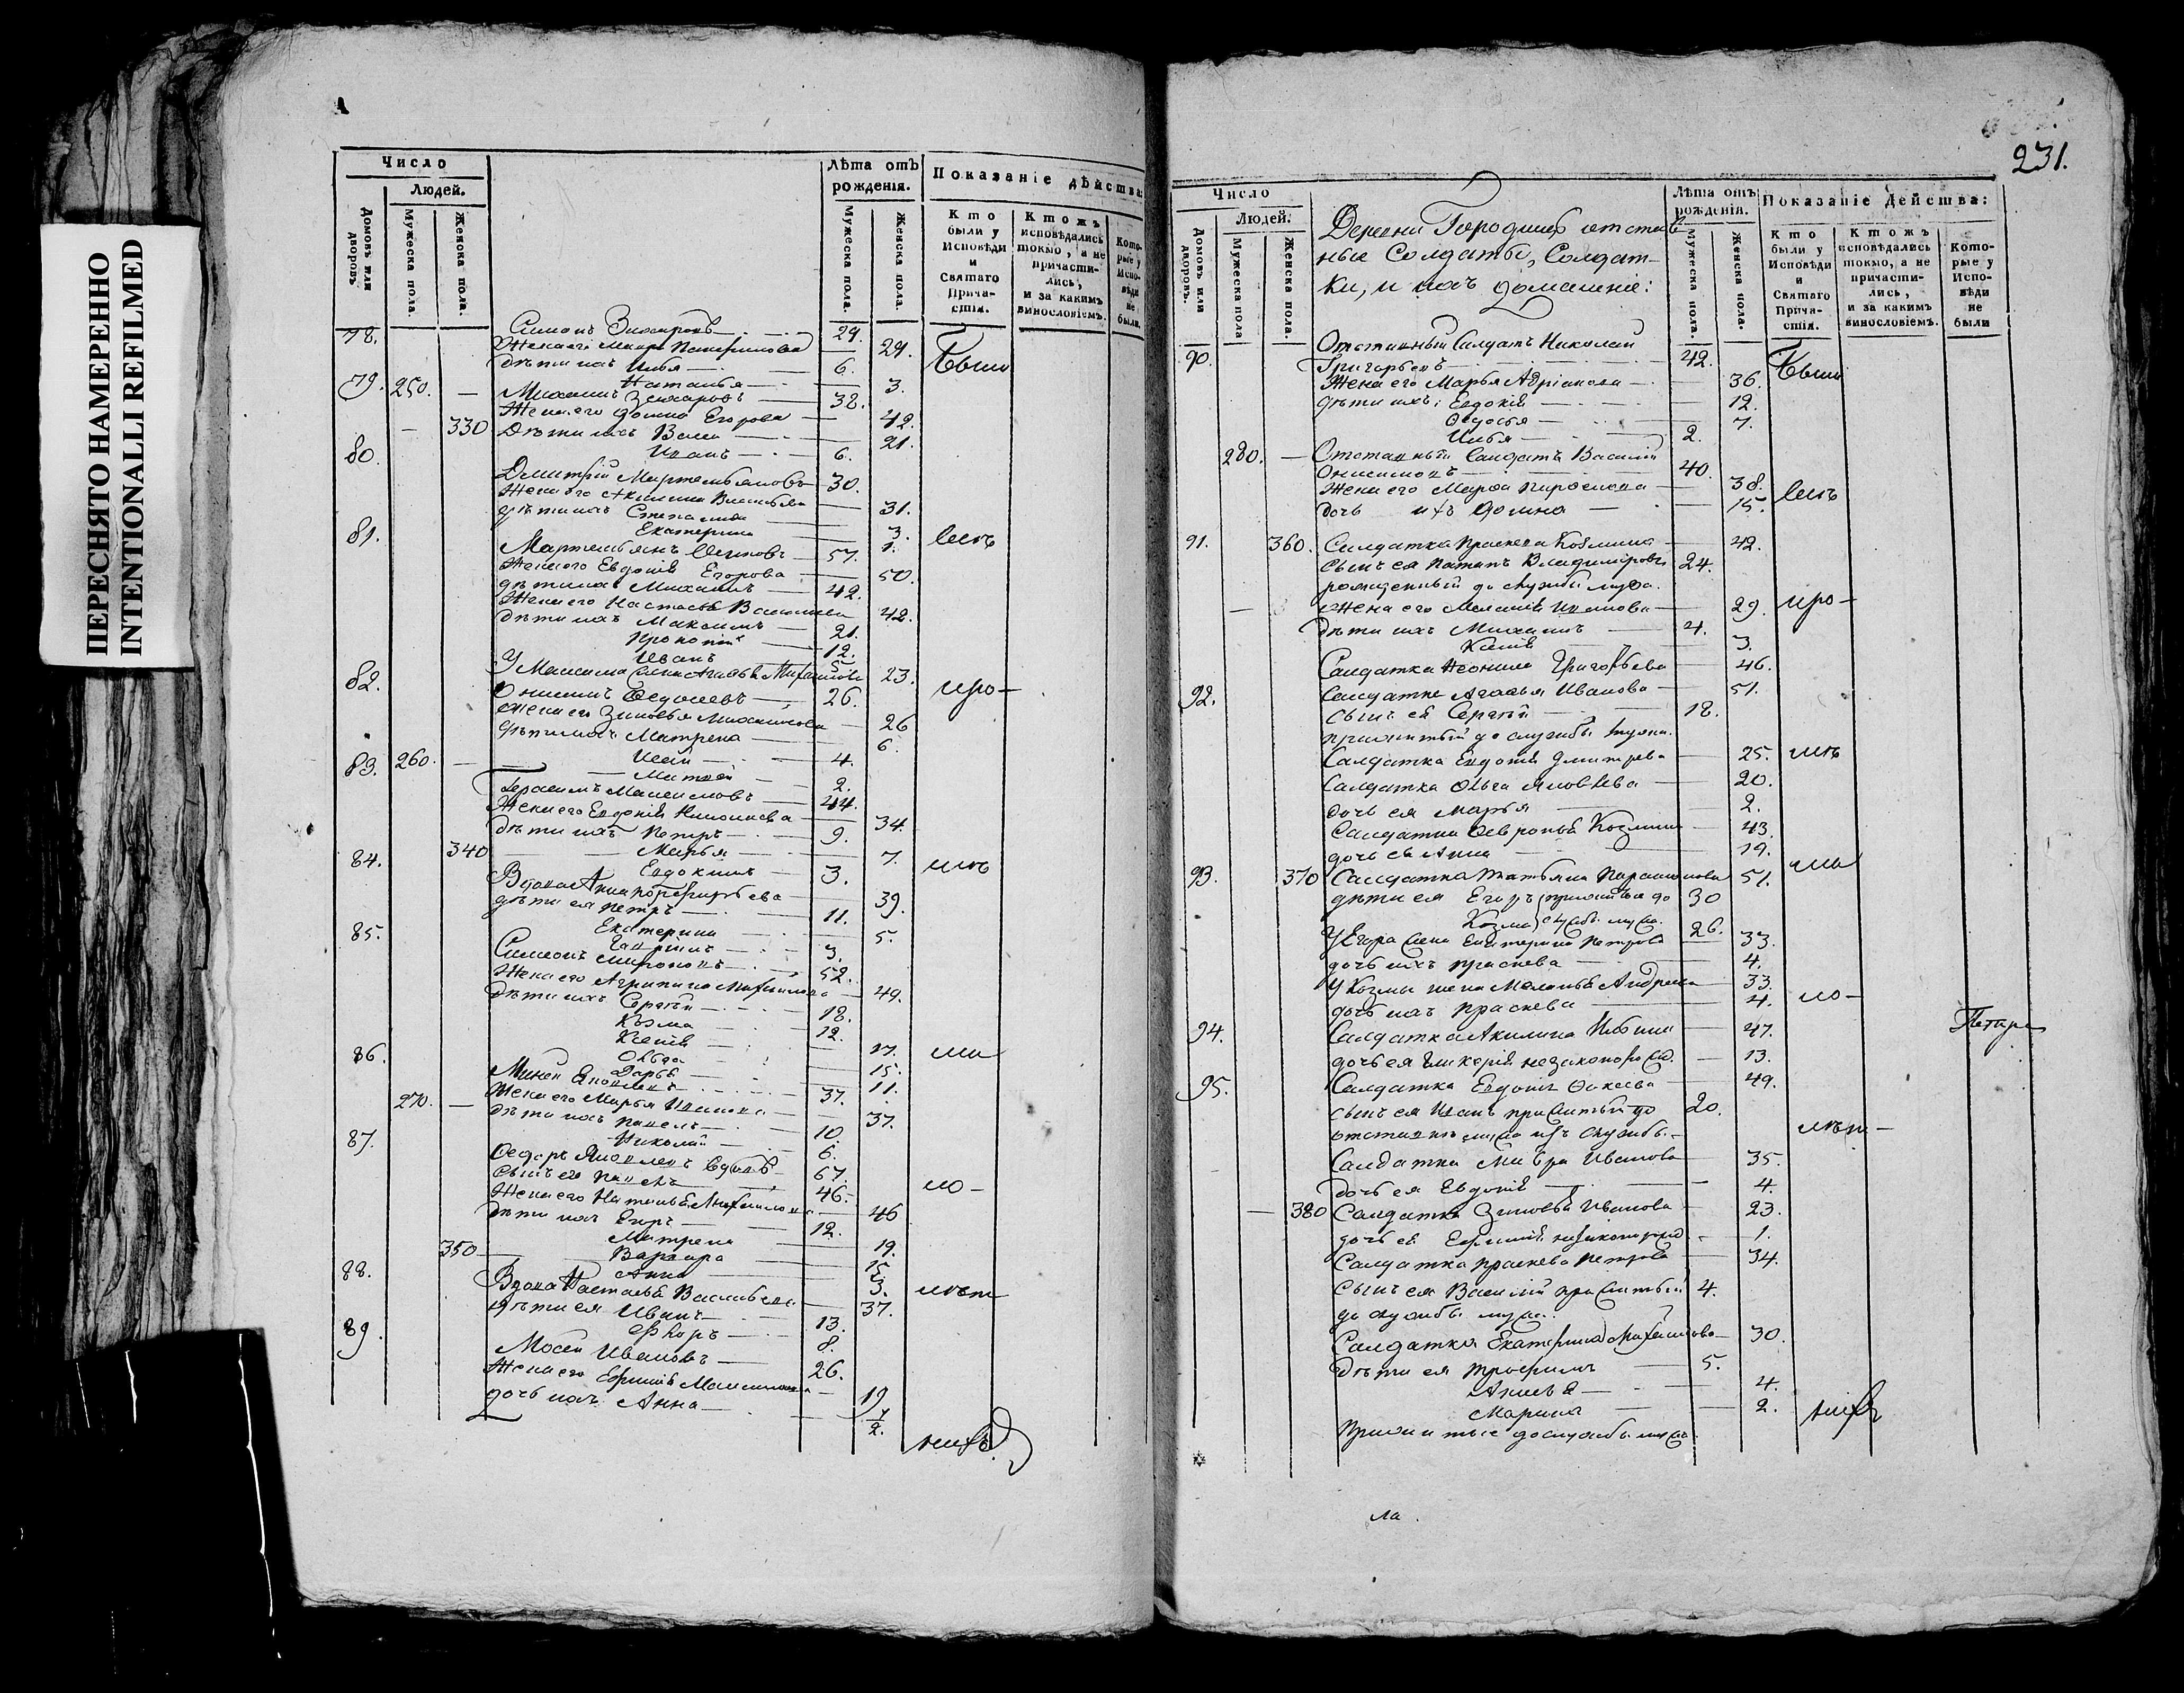 ПЕРЕСНЯТО НАМЕРЕННО
INTENTIONALLI REFILMED
Число
Людей.
Домовъ или дворовъ.
Мужеска пола.
Женска пола.
Лѣта отъ рожденія.
Мужеска пола.
Женска пола.
Показаніе дѣйства:
Кто были у Исповѣди и Святаго Прича-стія.
Ктожъ исповѣдались токмо, а не причасти-лись, и за какимъ винословіемъ.
Кото-рые у Испо-вѣди не были.
78. 29.
Жена его 29. Были
дѣти ихъ Илья 6.
Наталья 3.
79. 250. Михаилъ Захаровъ 38.
Жена его Домна Егорова 42.
330 Дѣти ихъ 21.
80. Иванъ 6.
Дмитрій Мартемьяновъ 30.
Жена его Акилина Васильева 31.
дѣти ихъ Степанида 3.
Екатерина 1. всѣ
81. Мартемьянъ 57.
Жена его Евдокія Егорова 50.
дѣти ихъ Михаилъ 42.
Жена его Настасья 42.
дѣти ихъ Максимъ 21.
Прокопій 12.
Иванъ 5.
У Максима жена Агафья Михайлова 23.
82. Онисимъ Федосеевъ 26. про-
Жена его Зиновья Михайлова 26
дѣти ихъ Матрена 6.
83. 260. 4.
Матвей 2.
Герасимъ Максимовъ 44.
Жена его Евдокія Николаева 34.
дѣти ихъ Петръ 9.
340 Марья 7.
84. Евдокимъ 3.
Вдова Анна Порфирьева 39.
дѣти ея Петръ 11.
Екатерина 5.
85. Гаврiилъ 3.
Симонъ Мироновъ 52.
Жена его Агрипина Михайлова 49.
дѣти ихъ Сергѣй 18.
Козма 12.
Ксенія 17.
Ольга 15.
86. Дарья 11.
37.
270. Жена его Марья Иванова 37.
дѣти ихъ Павелъ 10.
87. Николай 6.
Федоръ Яковлевъ вдовъ 67.
сынъ его Павелъ 46.
Жена его Наталья Михайлова 46
дѣти ихъ Егоръ 12.
Матрена 19.
350 Варвара 15.
88. Анна 3.
Вдова Настасья Васильева 37.
дѣти ея Иванъ 13.
89. Флоръ 8.
Мосей Ивановъ 26.
Жена его Ефимія Максимова 19
дочь ихъ Анна ½.
231.
Число
Людей.
Домовъ или дворовъ.
Мужеска пола
Женска пола.
Деревни Городищъ отстав-
ные Солдаты, Солдат-
ки, и ихъ домашніе:
Лѣта отъ рожденія.
Мужеска пола.
Женска пола.
Показаніе Действа:
Кто были у Исповѣди и Святаго Прича-стія.
Ктожъ исповѣдались токмо, а не причасти-лись, и за какимъ винословіемъ.
Кото-рые у Испо-вѣди не были
Отставный Салдатъ Николай
90. Григорьевъ 42. Были
Жена его Марья Адріанова 36.
дѣти ихъ: Евдокія 12.
Федосья 7.
Илья 2.
280. Отставный Салдатъ Василій
Онисимовъ 40.
Жена его Марфа 38. всѣ
дочь ихъ Домна 15.
91. 360. Салдатка Праскева Козмина 42.
сынъ ея Потапъ Владимировъ 24.
рожденный до службы мужа.
Жена его Меланія Иванова 29. про-
дѣти ихъ Михаилъ 4.
Ксенія 3.
Салдатка Неонила Григорьева 46.
92. Салдатка Агафья Иванова 51.
сынъ ея Сергѣй 18.
прижитый до службы мужа.
Салдатка Евдокія Дмитрева 25.
Салдатка Ольга Яковлева 20.
дочь ея Марья 2.
Салдатка Февронья Козмина 43.
дочь ея Анна 19.
93. 370 Салдатка Татьяна 51.
дѣти ея Егоръ прижитые до 30
Козма службы мужа. 26.
У Егора жена Екатерина Петрова 33.
дочь ихъ Праскева 4.
У Козмы жена Меланья Андреева 33.
дочь ихъ Праскева 4.
94. Салдатка Акилина Ильина 47.
дочь ея Гликерія незаконорож. 13.
95. Салдатка Евдокія Фокеева 49.
сынъ ея Иванъ прижитый до 20.
отставки мужа изъ службы.
Салдатка Мавра Иванова 35.
дочь ея Евдокія 4.
380 Салдатка Зиновья Иванова 23.
дочь ея Ефимія незаконорожд. 1.
Салдатка Праскева Петрова 34.
сынъ ея Василій прижитый 4.
до службы мужа.
Салдатка Екатерина Михайлова 30.
дѣти ея Трофимъ 5.
4.
Марина 2.
Прижитые до службы мужа
ла.